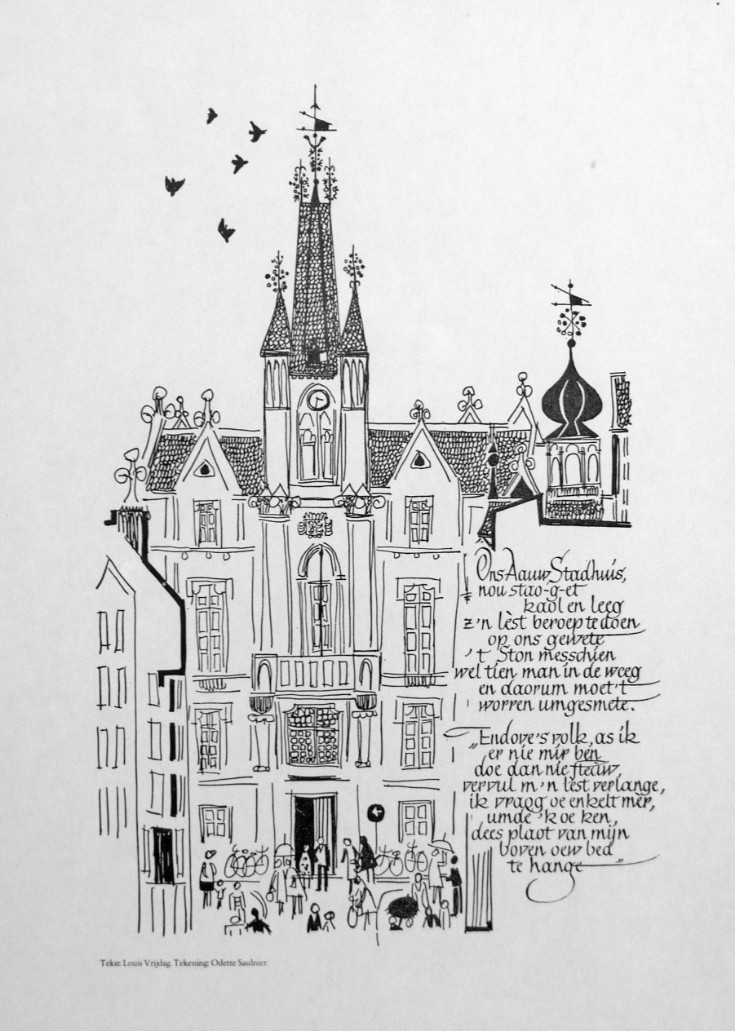 Ons Aauw Stadhuis,
nou stao-g-et
kaol en leeg
z'n lèst beroep te doen
op ons gewete
't Ston messchien
wel tien man in de weeg
en daorum moet 't
worren umgesmete.
„Endove's volk, as ik
er nie mir ben
doe dan nie flaauw,
vervul m'n lèst verlange,
ik vraog oe enkelt mèr,
umdè 'k oe ken,
dees plaot van mijn
boven oew bed
te hange"
Tekst: Louis Vrijdag. Tekening: Odette Saulnier.